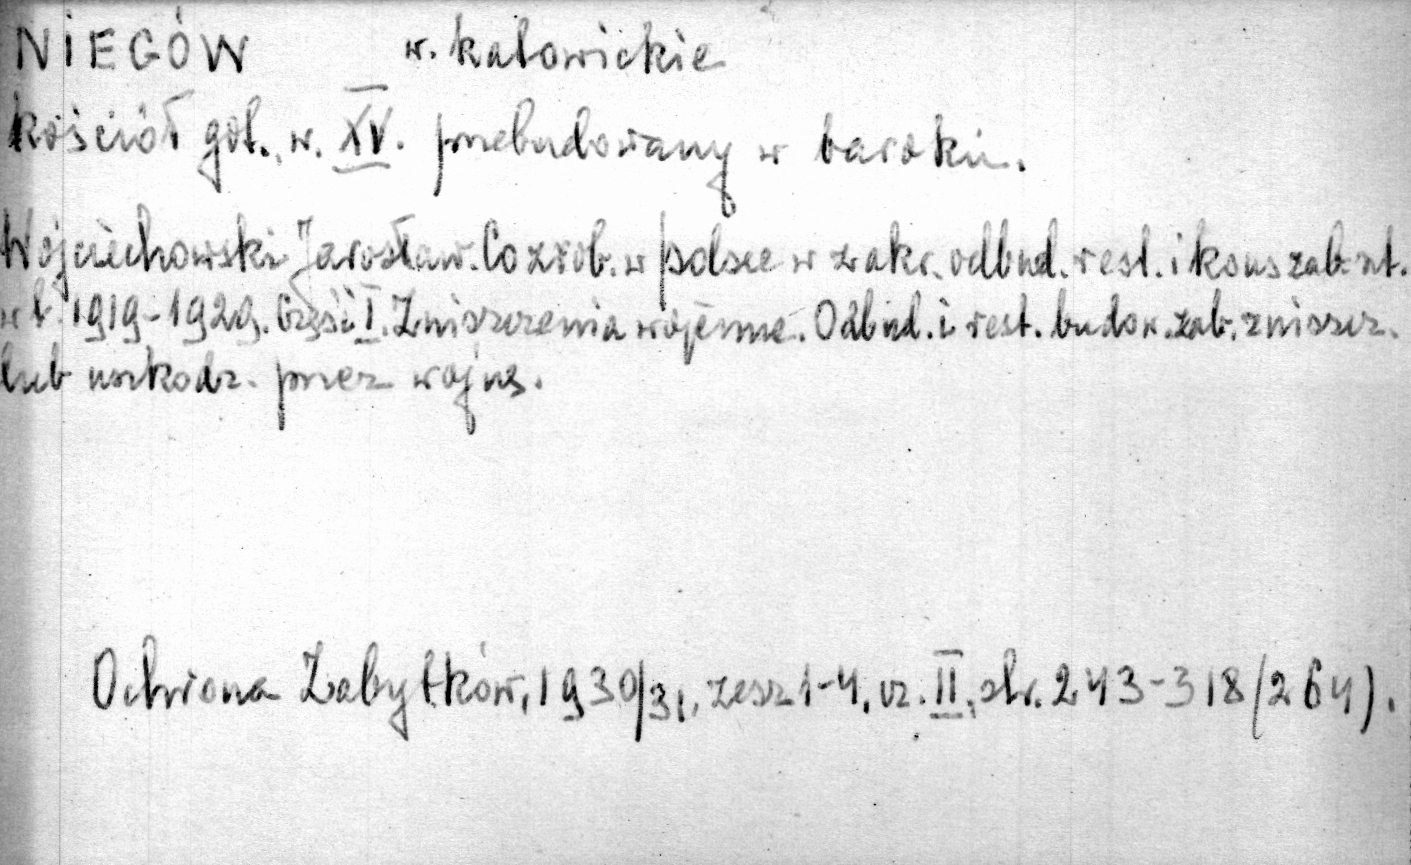 NIEGÓW w. katowickie
kościół got. w. XV. przebudowany w baroku.
Wojciechowski Jarosław. Co zrob. w Polsce w zakr. odbud. rest. i kons zab. szt.
w l. 1919-1929. Część I. Zniszczenia wojenne. Odbud. i rest. budow. zab. zniszcz.
lub uszkodz. przez wojnę.
Ochrona Zabytków, 1930/31, zesz 1-4, cz. II, str. 243-318 (264).